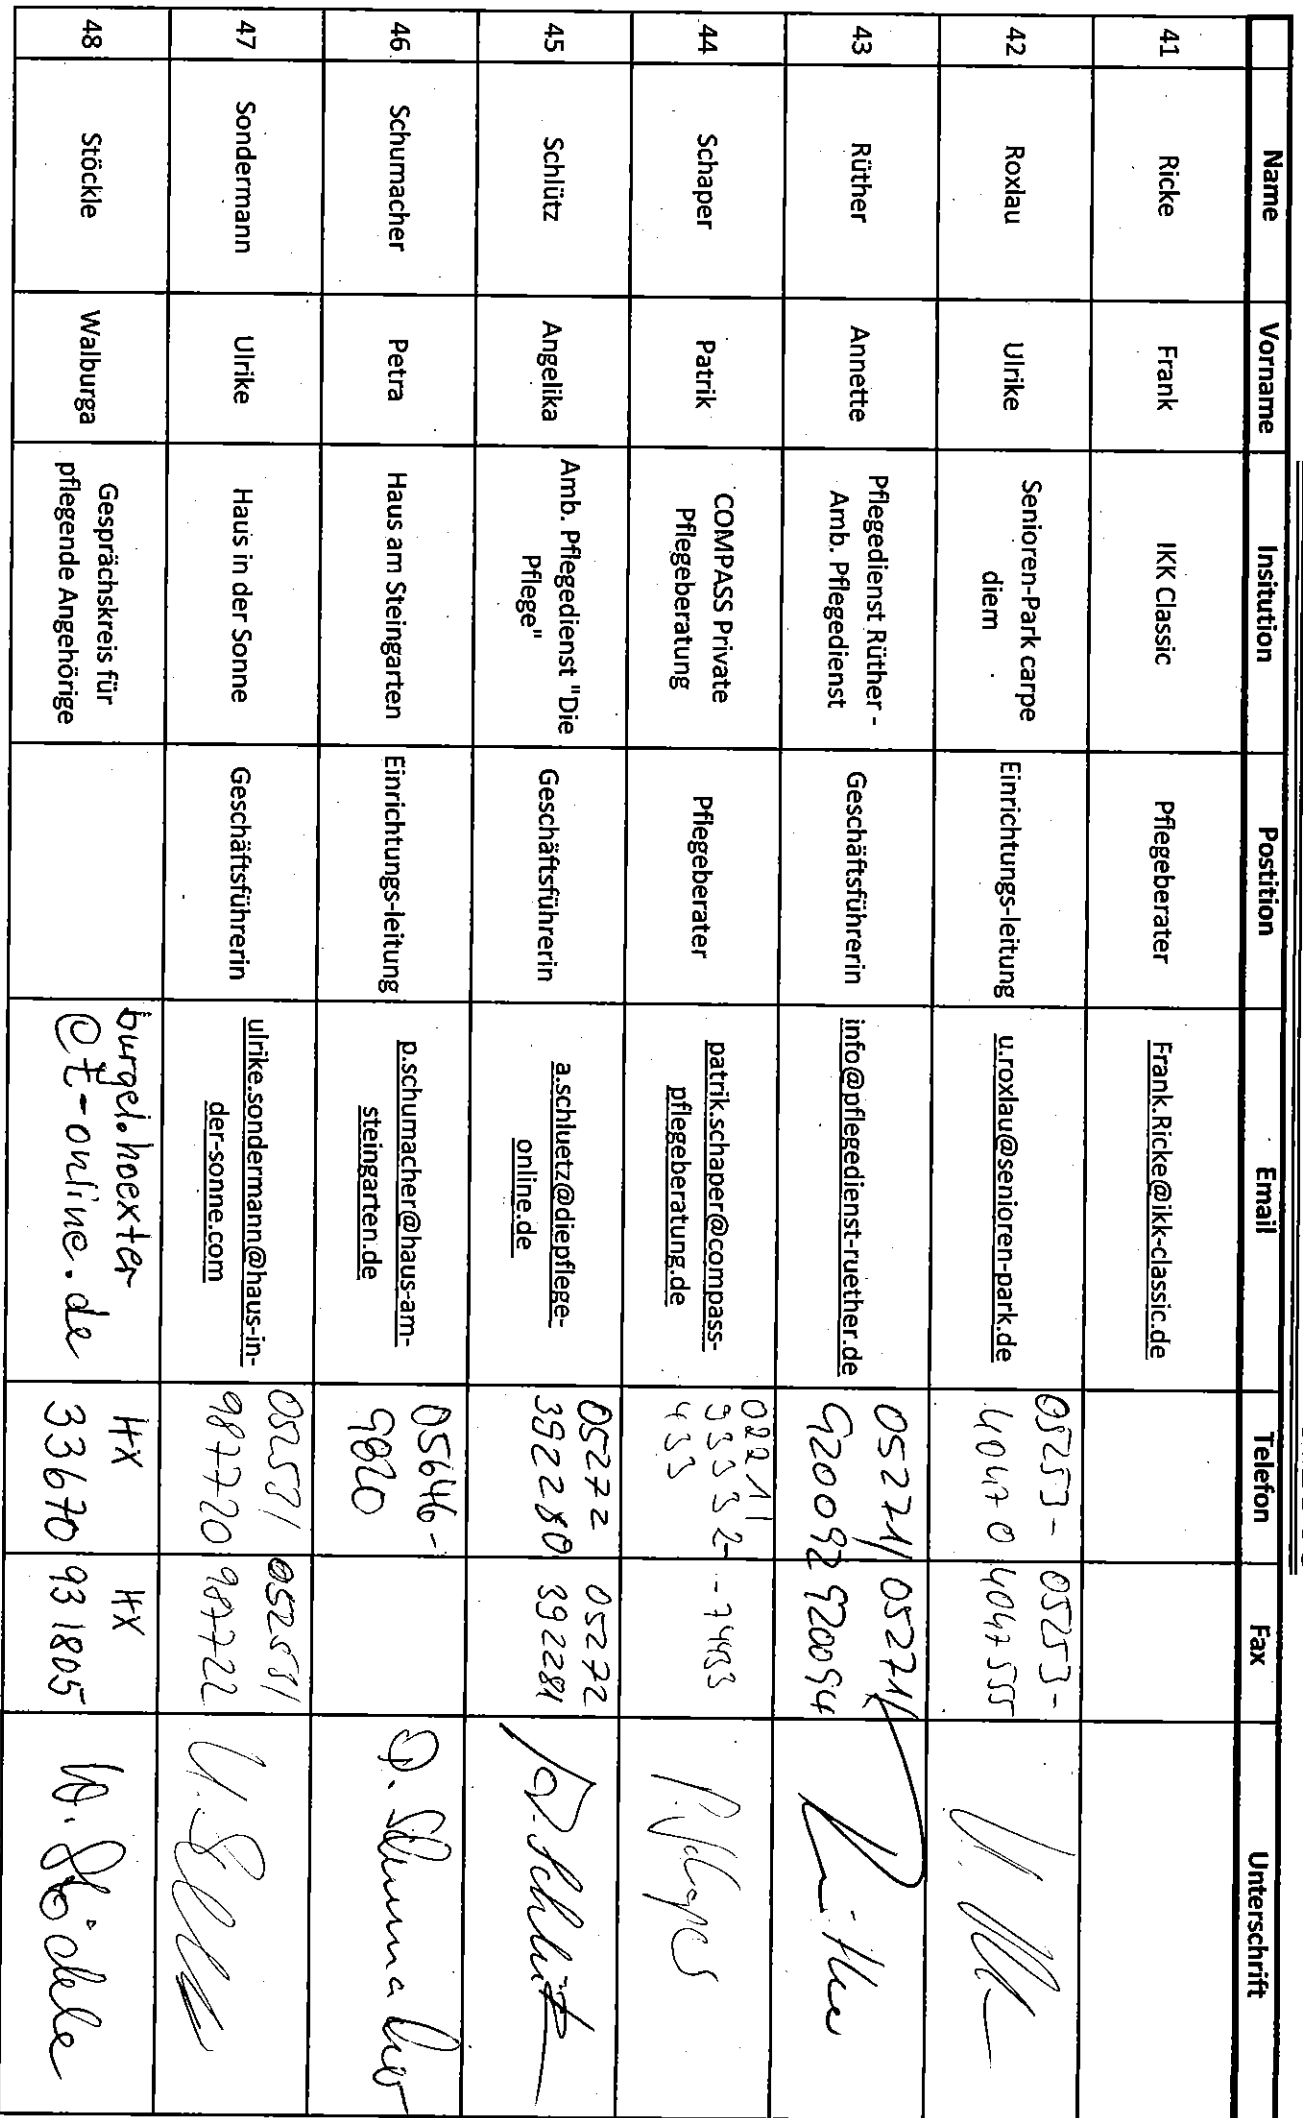 Name Vorname Insitution Postition Email Telefon Fax Unterschrift
41 Ricke Frank IKK Classic Pflegeberater Frank.Ricke@ikk-classic.de
42 Roxlau Ulrike Senioren-Park carpe diem Einrichtungs-leitung u.roxlau@senioren-park.de 05253-40470 05253-4047555
43 Rüther Annette Pflegedienst Rüther - Amb. Pflegedienst Geschäftsführerin info@pflegedienst-ruether.de 05271/920092 05271/920094 Rüther
44 Schaper Patrik COMPASS Private Pflegeberatung Pflegeberater patrik.schaper@compass-pflegeberatung.de 0221/93332-433 -74433
45 Schlütz Angelika Amb. Pflegedienst "Die Pflege" Geschäftsführerin a.schluetz@diepflege-online.de 05272 3922280 05272 392281 A. Schlütz
46 Schumacher Petra Haus am Steingarten Einrichtungs-leitung p.schumacher@haus-am-steingarten.de 05646-9820 P. Schumacher
47 Sondermann Ulrike Haus in der Sonne Geschäftsführerin ulrike.sondermann@haus-in-der-sonne.com 05253/987720 05253/987722
48 Stöckle Walburga Gesprächskreis für pflegende Angehörige burgel.hoexter@t-online.de HX 33670 HX 931805 W. Stöckle